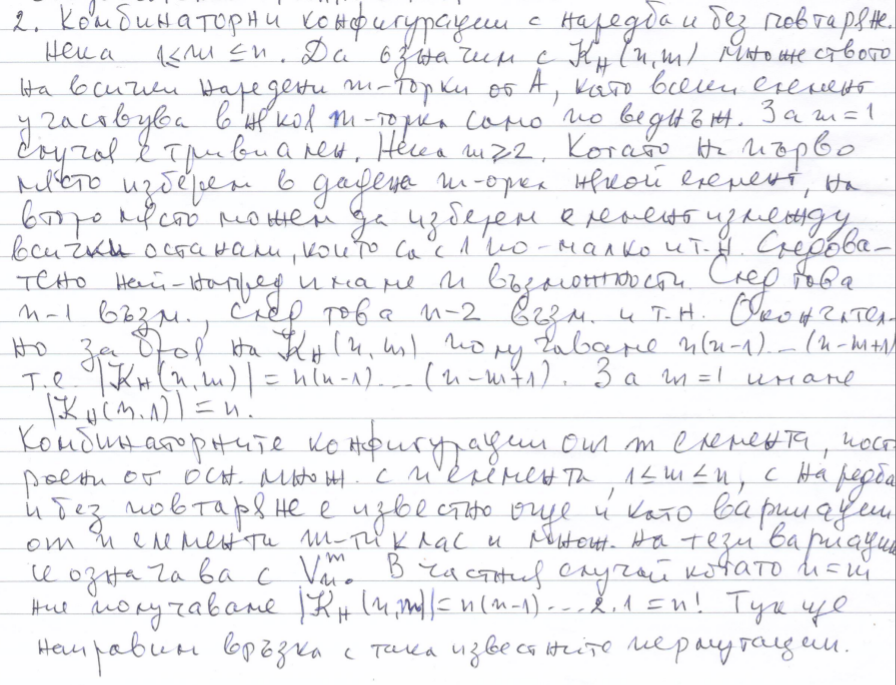 2. Комбинаторни конфигурации с наредба и без повтаряне.
Нека 1≤m≤n. Да означим с K_H(n,m) множеството
на всички наредени m-торки от A, като всеки елемент
участвува в някоя m-торка само по веднъж. За m=1
случая е тривиален. Нека m≥2. Когато на първо
място изберем в дадена m-орка някой елемент, на
второ място можем да изберем елемент измежду
всички останали, които са с 1 по-малко и т.н. Следова-
телно най-напред имаме n възможности. След това
n-1 възм., след това n-2 възм. и т.н. Окончател-
но за броя на K_H(n,m) получаваме n(n-1)...(n-m+1)
т.е. |K_H(n,m)| = n(n-1)...(n-m+1). За m=1 имаме
|K_H(n,1)| = n.
Комбинаторните конфигурации от m елемента, пост-
роени от осн. множ. с n елемента, 1≤m≤n, с наредба
и без повтаряне е известно още и като вариации
от n елементи m-ти клас и множ. на тези вариации
се означава с V_n^m. В частния случай когато n=m
ние получаваме |K_H(n,m)|=n(n-1)...2.1=n! Тук ще
направим връзка с така известните пермутации.